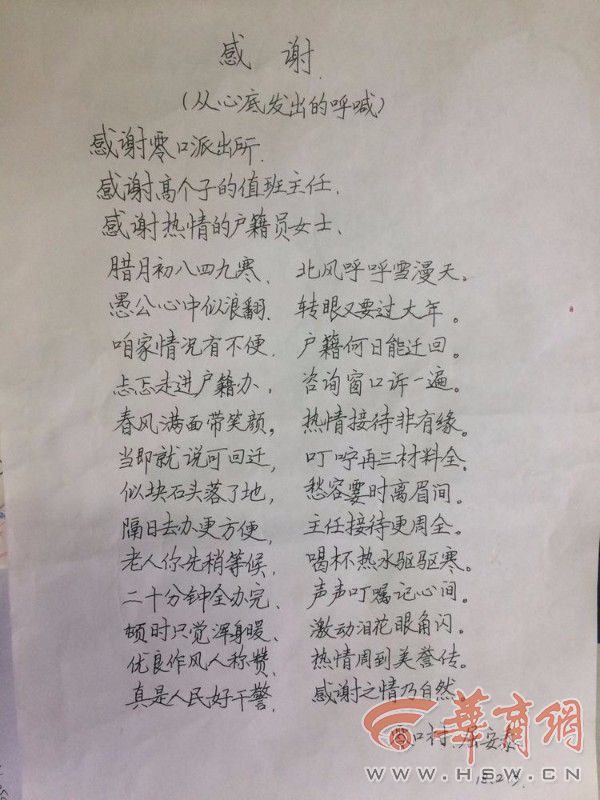 感谢
(从心底发出的呼喊)
感谢零口派出所.
感谢高个子的值班主任.
感谢热情的户籍员女士.
腊月初八四九寒、 北风呼呼雪漫天。
愚公心中似浪翻、 转眼又要过大年。
咱家情况有不便、 户籍何日能迁回。
忐忑走进户籍办、 咨询窗口诉一遍。
春风满面带笑颜, 热情接待非有缘。
当即就说可回迁, 叮咛再三材料全.
似块石头落了地, 愁容霎时离眉间。
隔日去办更方便、 主任接待更周全。
老人你先稍等候、 喝杯热水驱驱寒。
二十分钟全办完、 声声叮嘱记心间。
顿时只觉浑身暖、 激动泪花眼角闪。
优良作风人称赞、 热情周到美誉传。
真是人民好干警、 感谢之情乃自然
口村.
華商網
www.HSW.CN